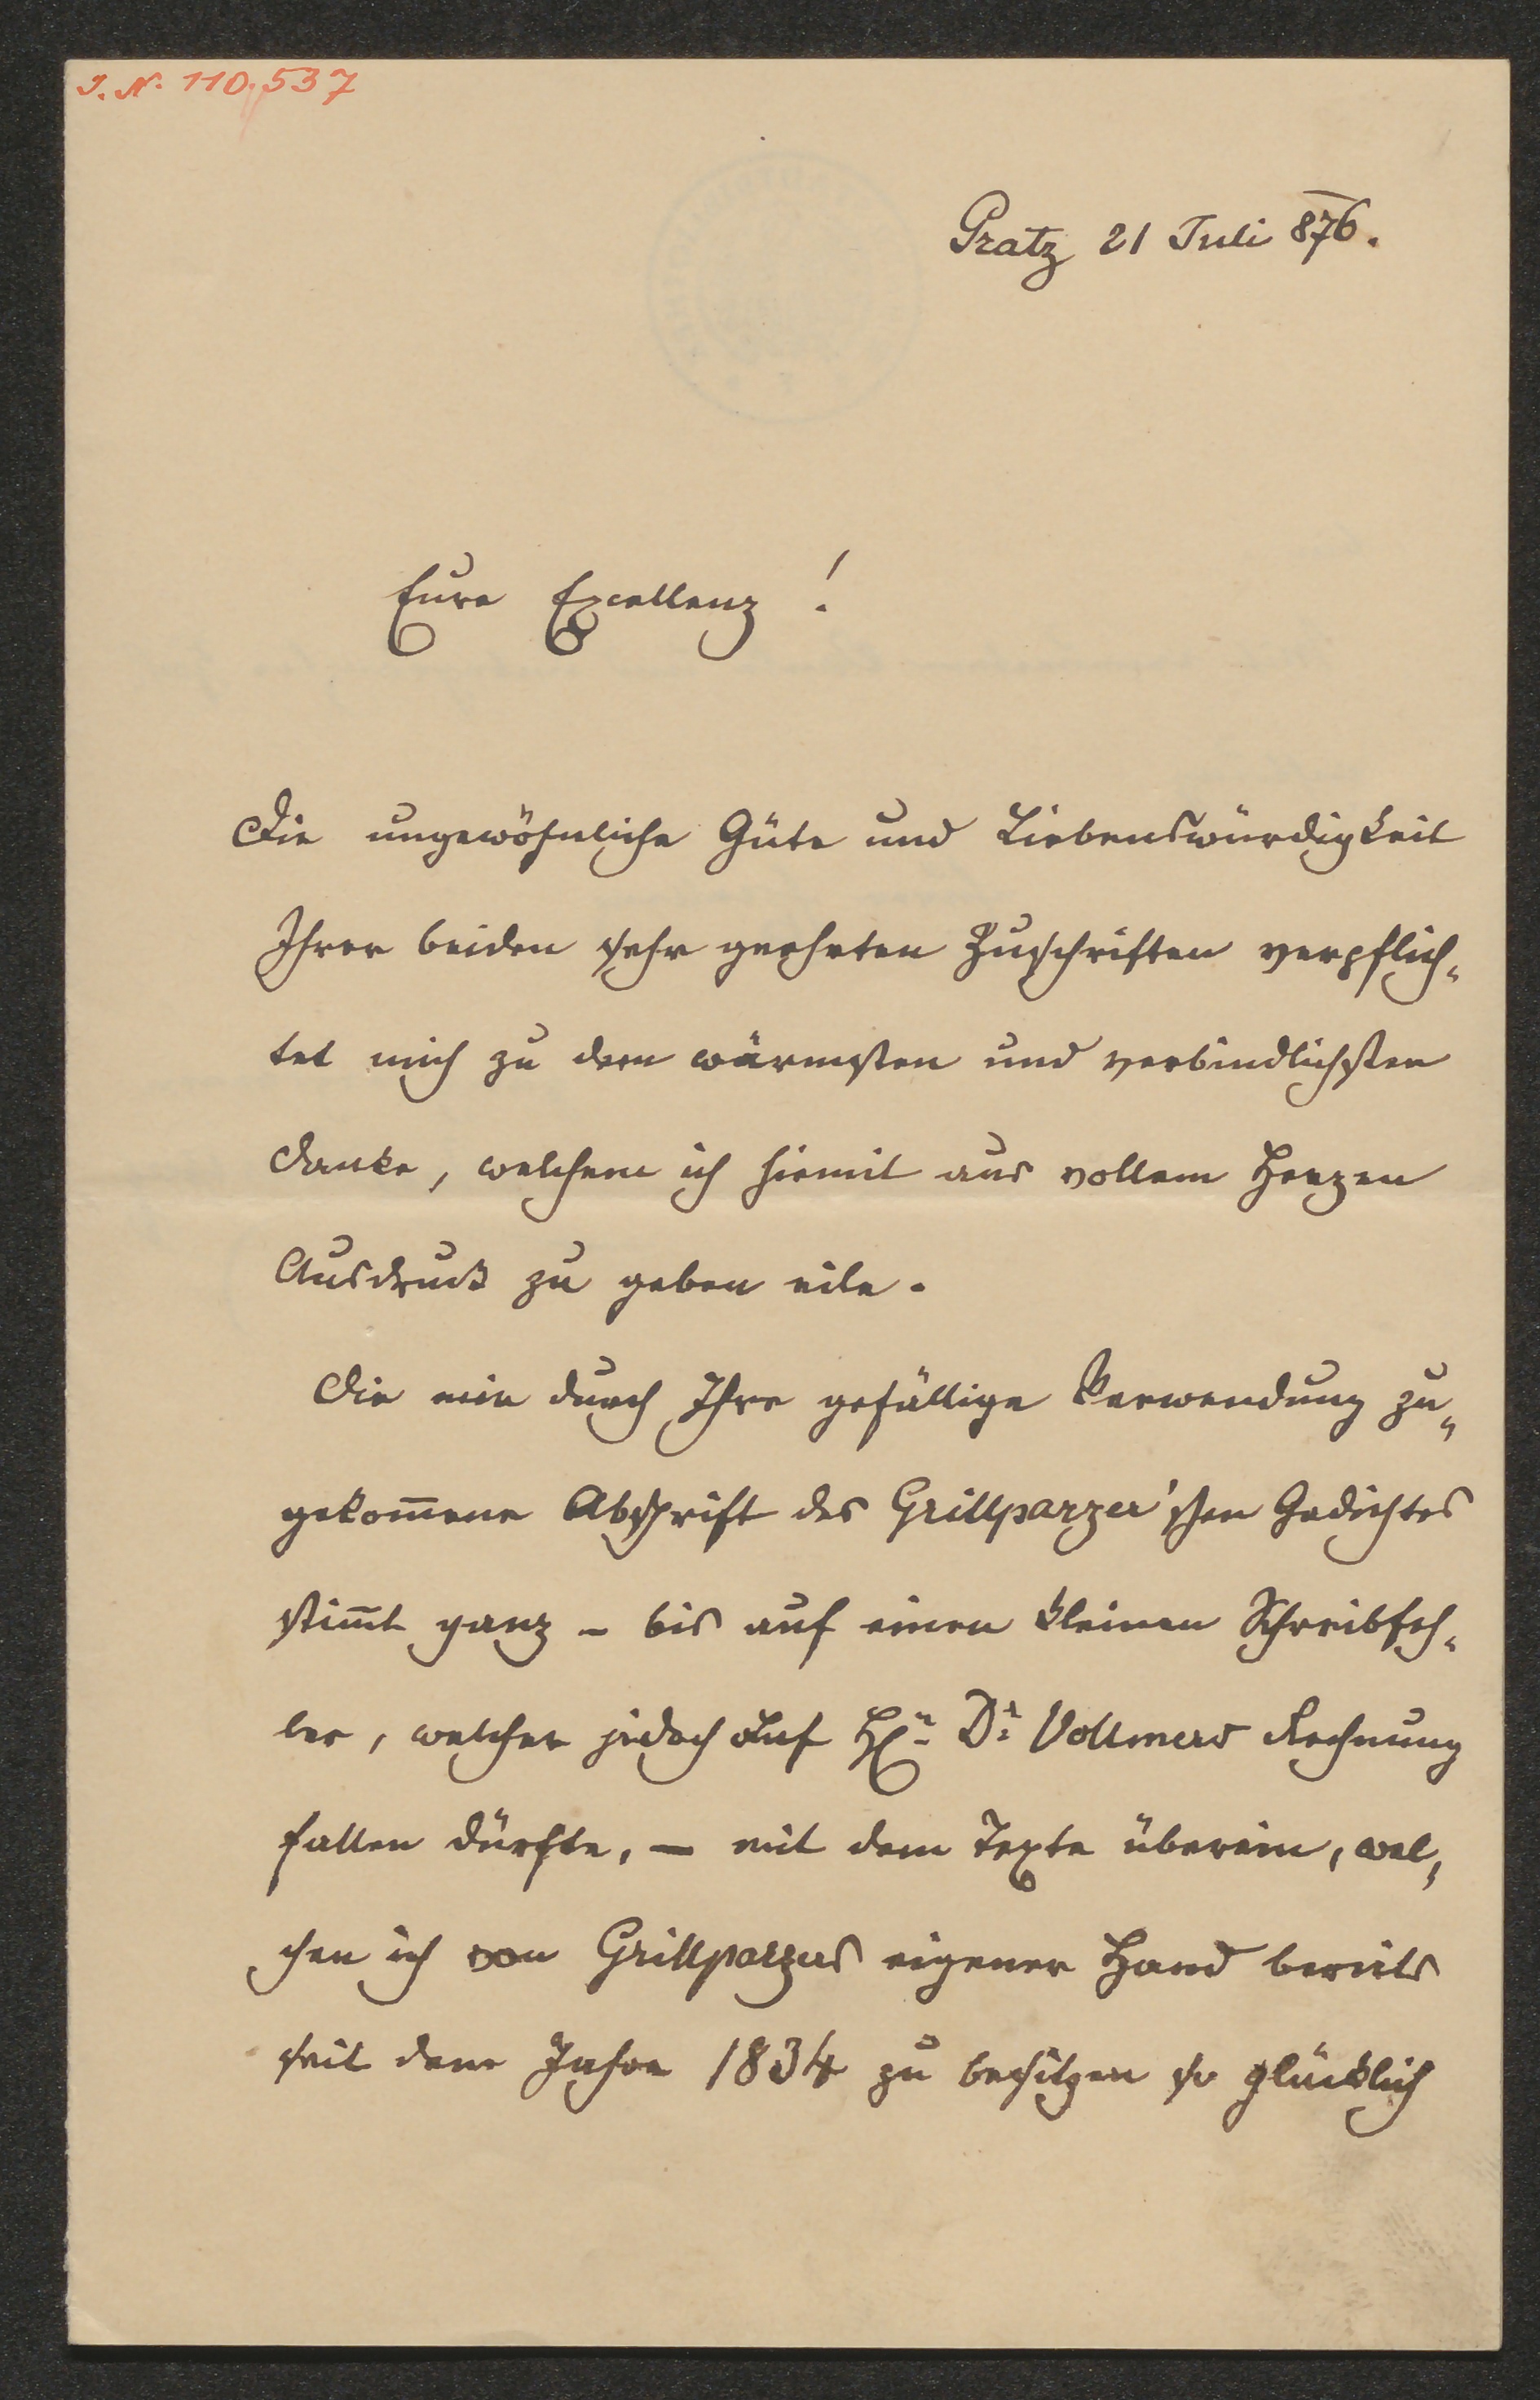 I. N. 110.537
Gratz 21 Juli 876.
Eure Excellenz!
Die ungewöhnliche Güte und Liebenswürdigkeit
Ihrer beiden sehr geehrten Zuschriften verpflich-
tet mich zu dem wärmsten und verbindlichsten
Danke, welchem ich hiemit aus vollem Herzen
Ausdruck zu geben eile.
Die mir durch Ihre gefällige Verwendung zu-
gekom̅ene Abschrift des Grillparzer'schen Gedichtes
stim̅t ganz – bis auf einen kleinen Schreibfeh-
ler, welcher jedoch auf H. Dr Vollmers Rechnung
fallen dürfte, – mit dem Texte überein, wel-
chen ich von Grillparzers eigener Hand bereits
seit dem Jahre 1834 zu besitzen so glücklich